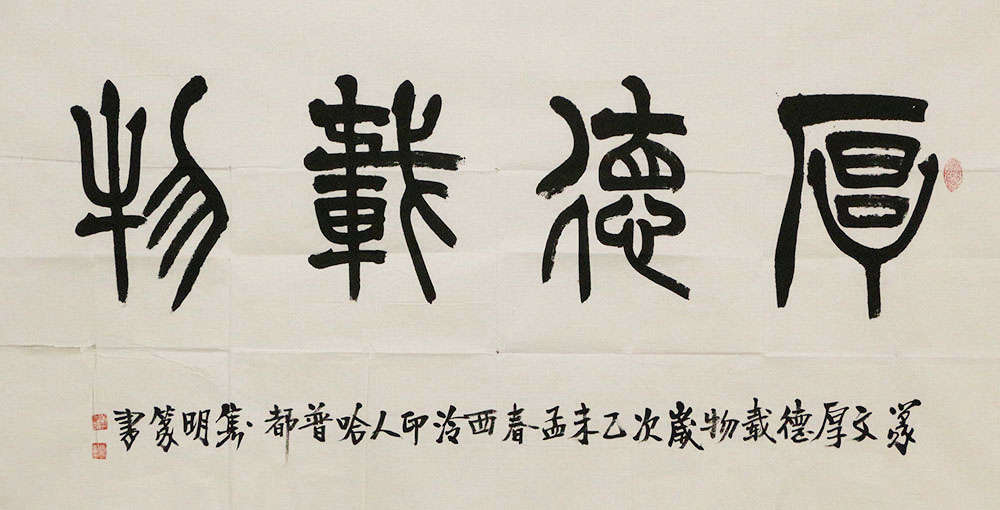 厚德載物
篆文厚德載物歲次乙未孟春西泠印人哈普都雋明篆書